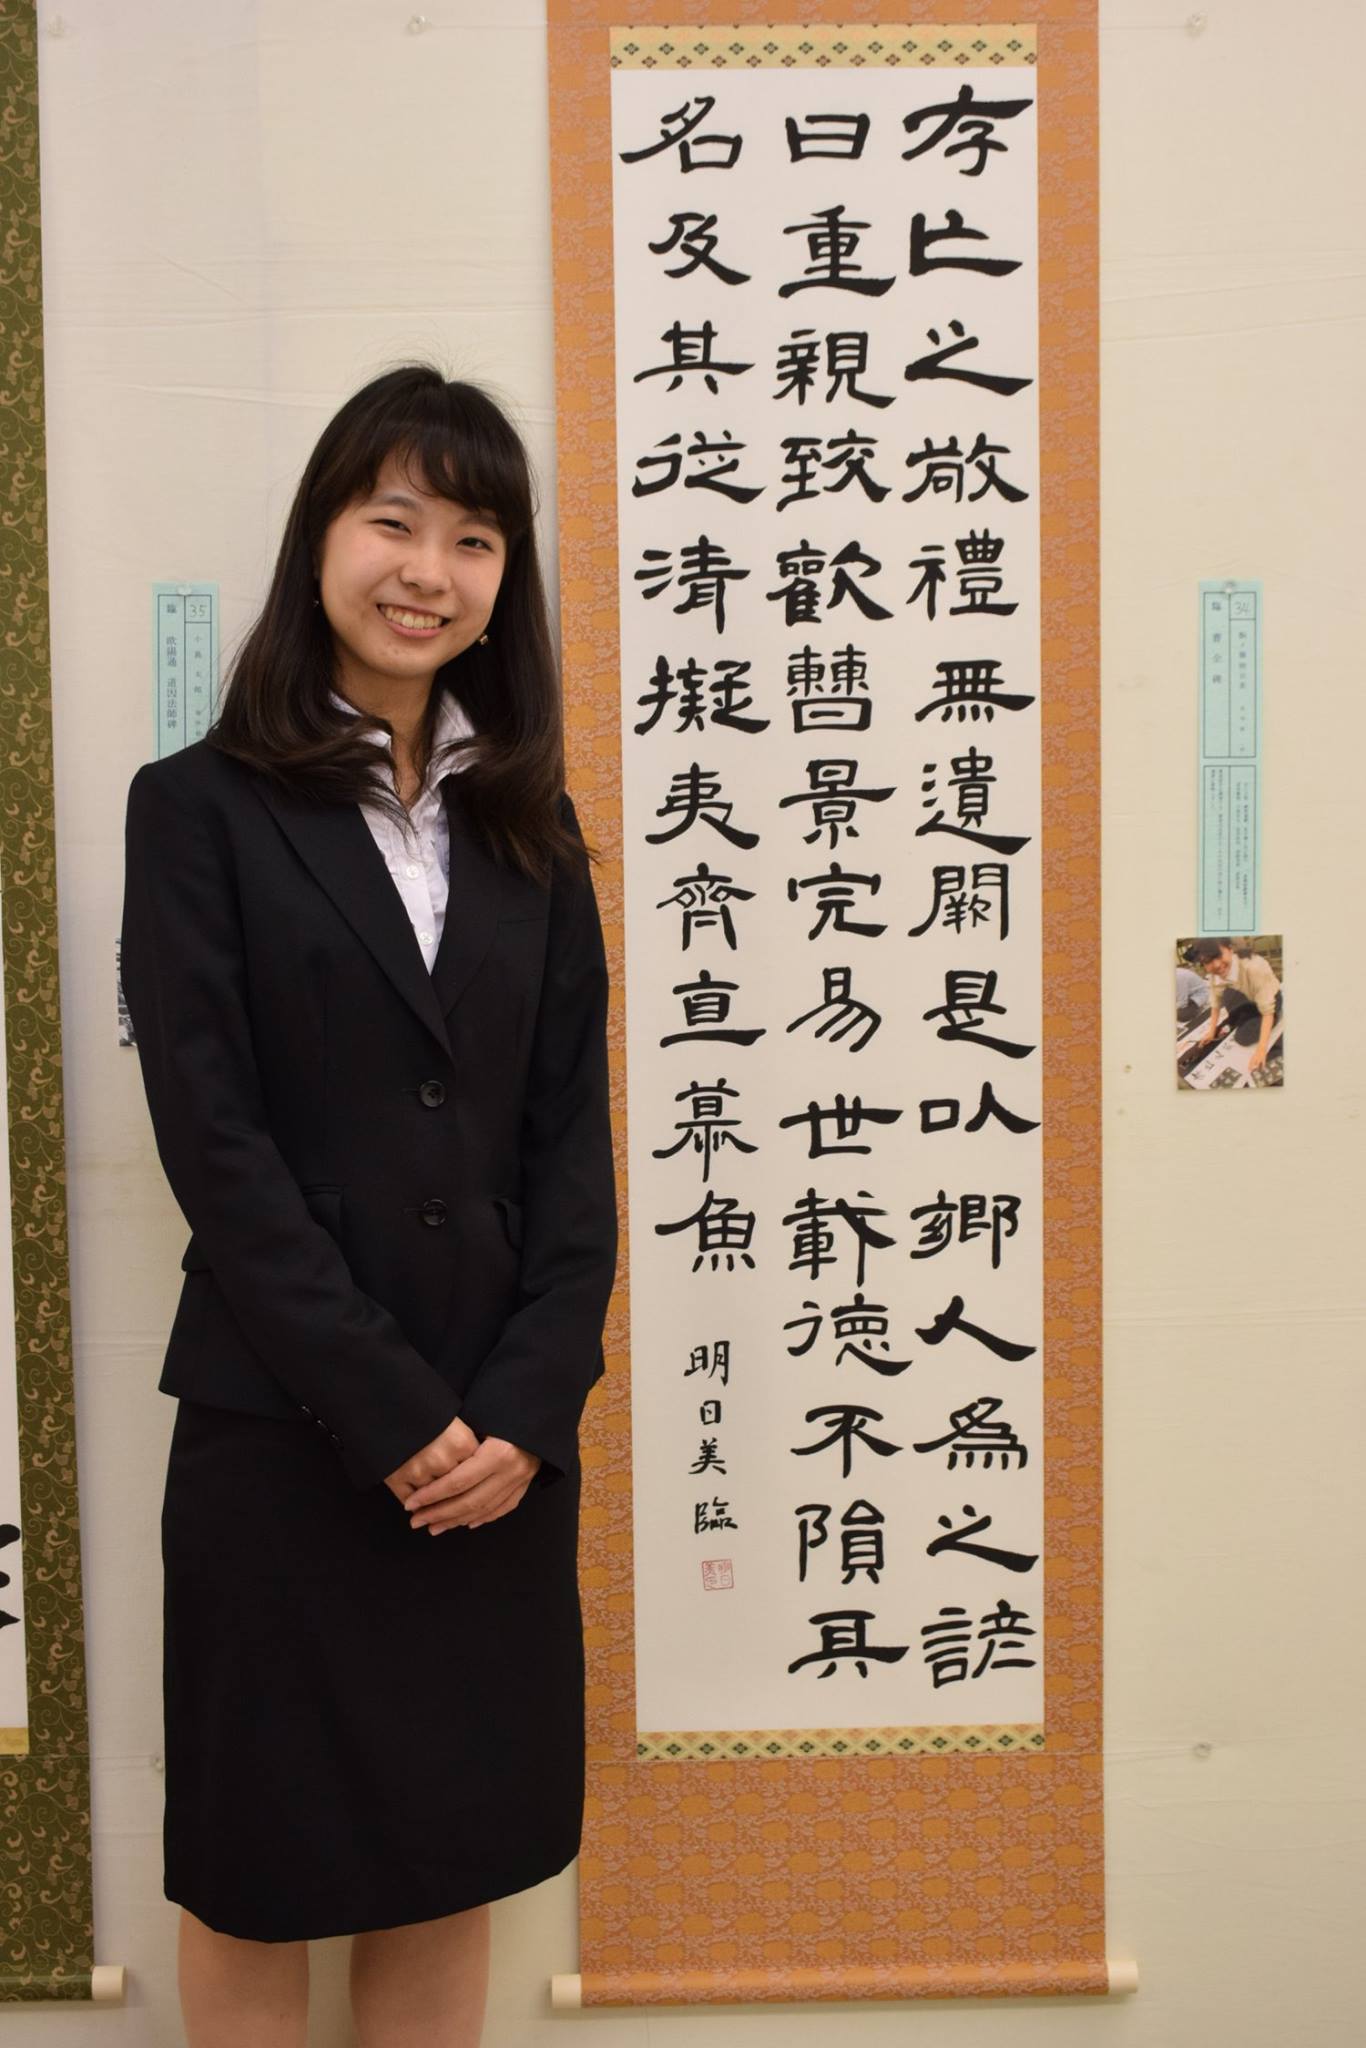 存亡之敬禮無遺闕是以鄉人為之諺
曰重親致歡曹景完易世載德不隕其
名及其從清擬夷齊直慕魚
明日美臨
34
臨 曹全碑
35
臨 欧陽通 道因法師碑